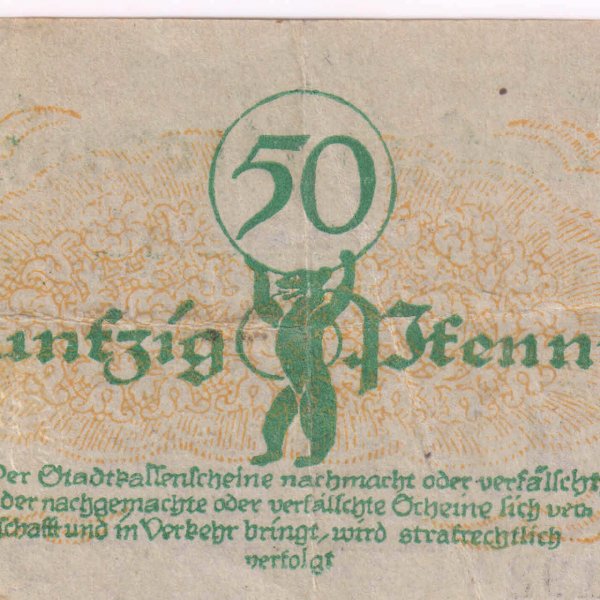 50
unfzig Pfenni
Der Stadtkassenscheine nachmacht oder verfälscht
der nachgemachte oder verfälschte Scheine sich ver
schafft und in Verkehr bringt, wird strafrechtlich
verfolgt